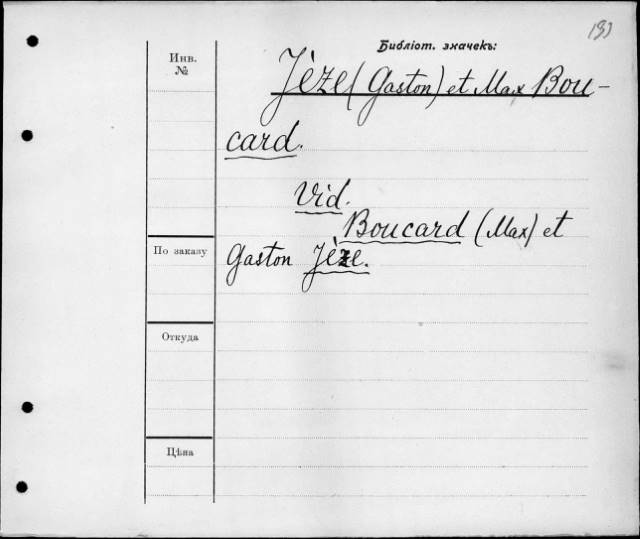 193
Библіот. значекъ:
Инв.
№
Jèze (Gaston) et Max Bou-
card.
Vid.
Boucard (Max) et
Gaston Jèze.
По заказу
Откуда
Цѣна